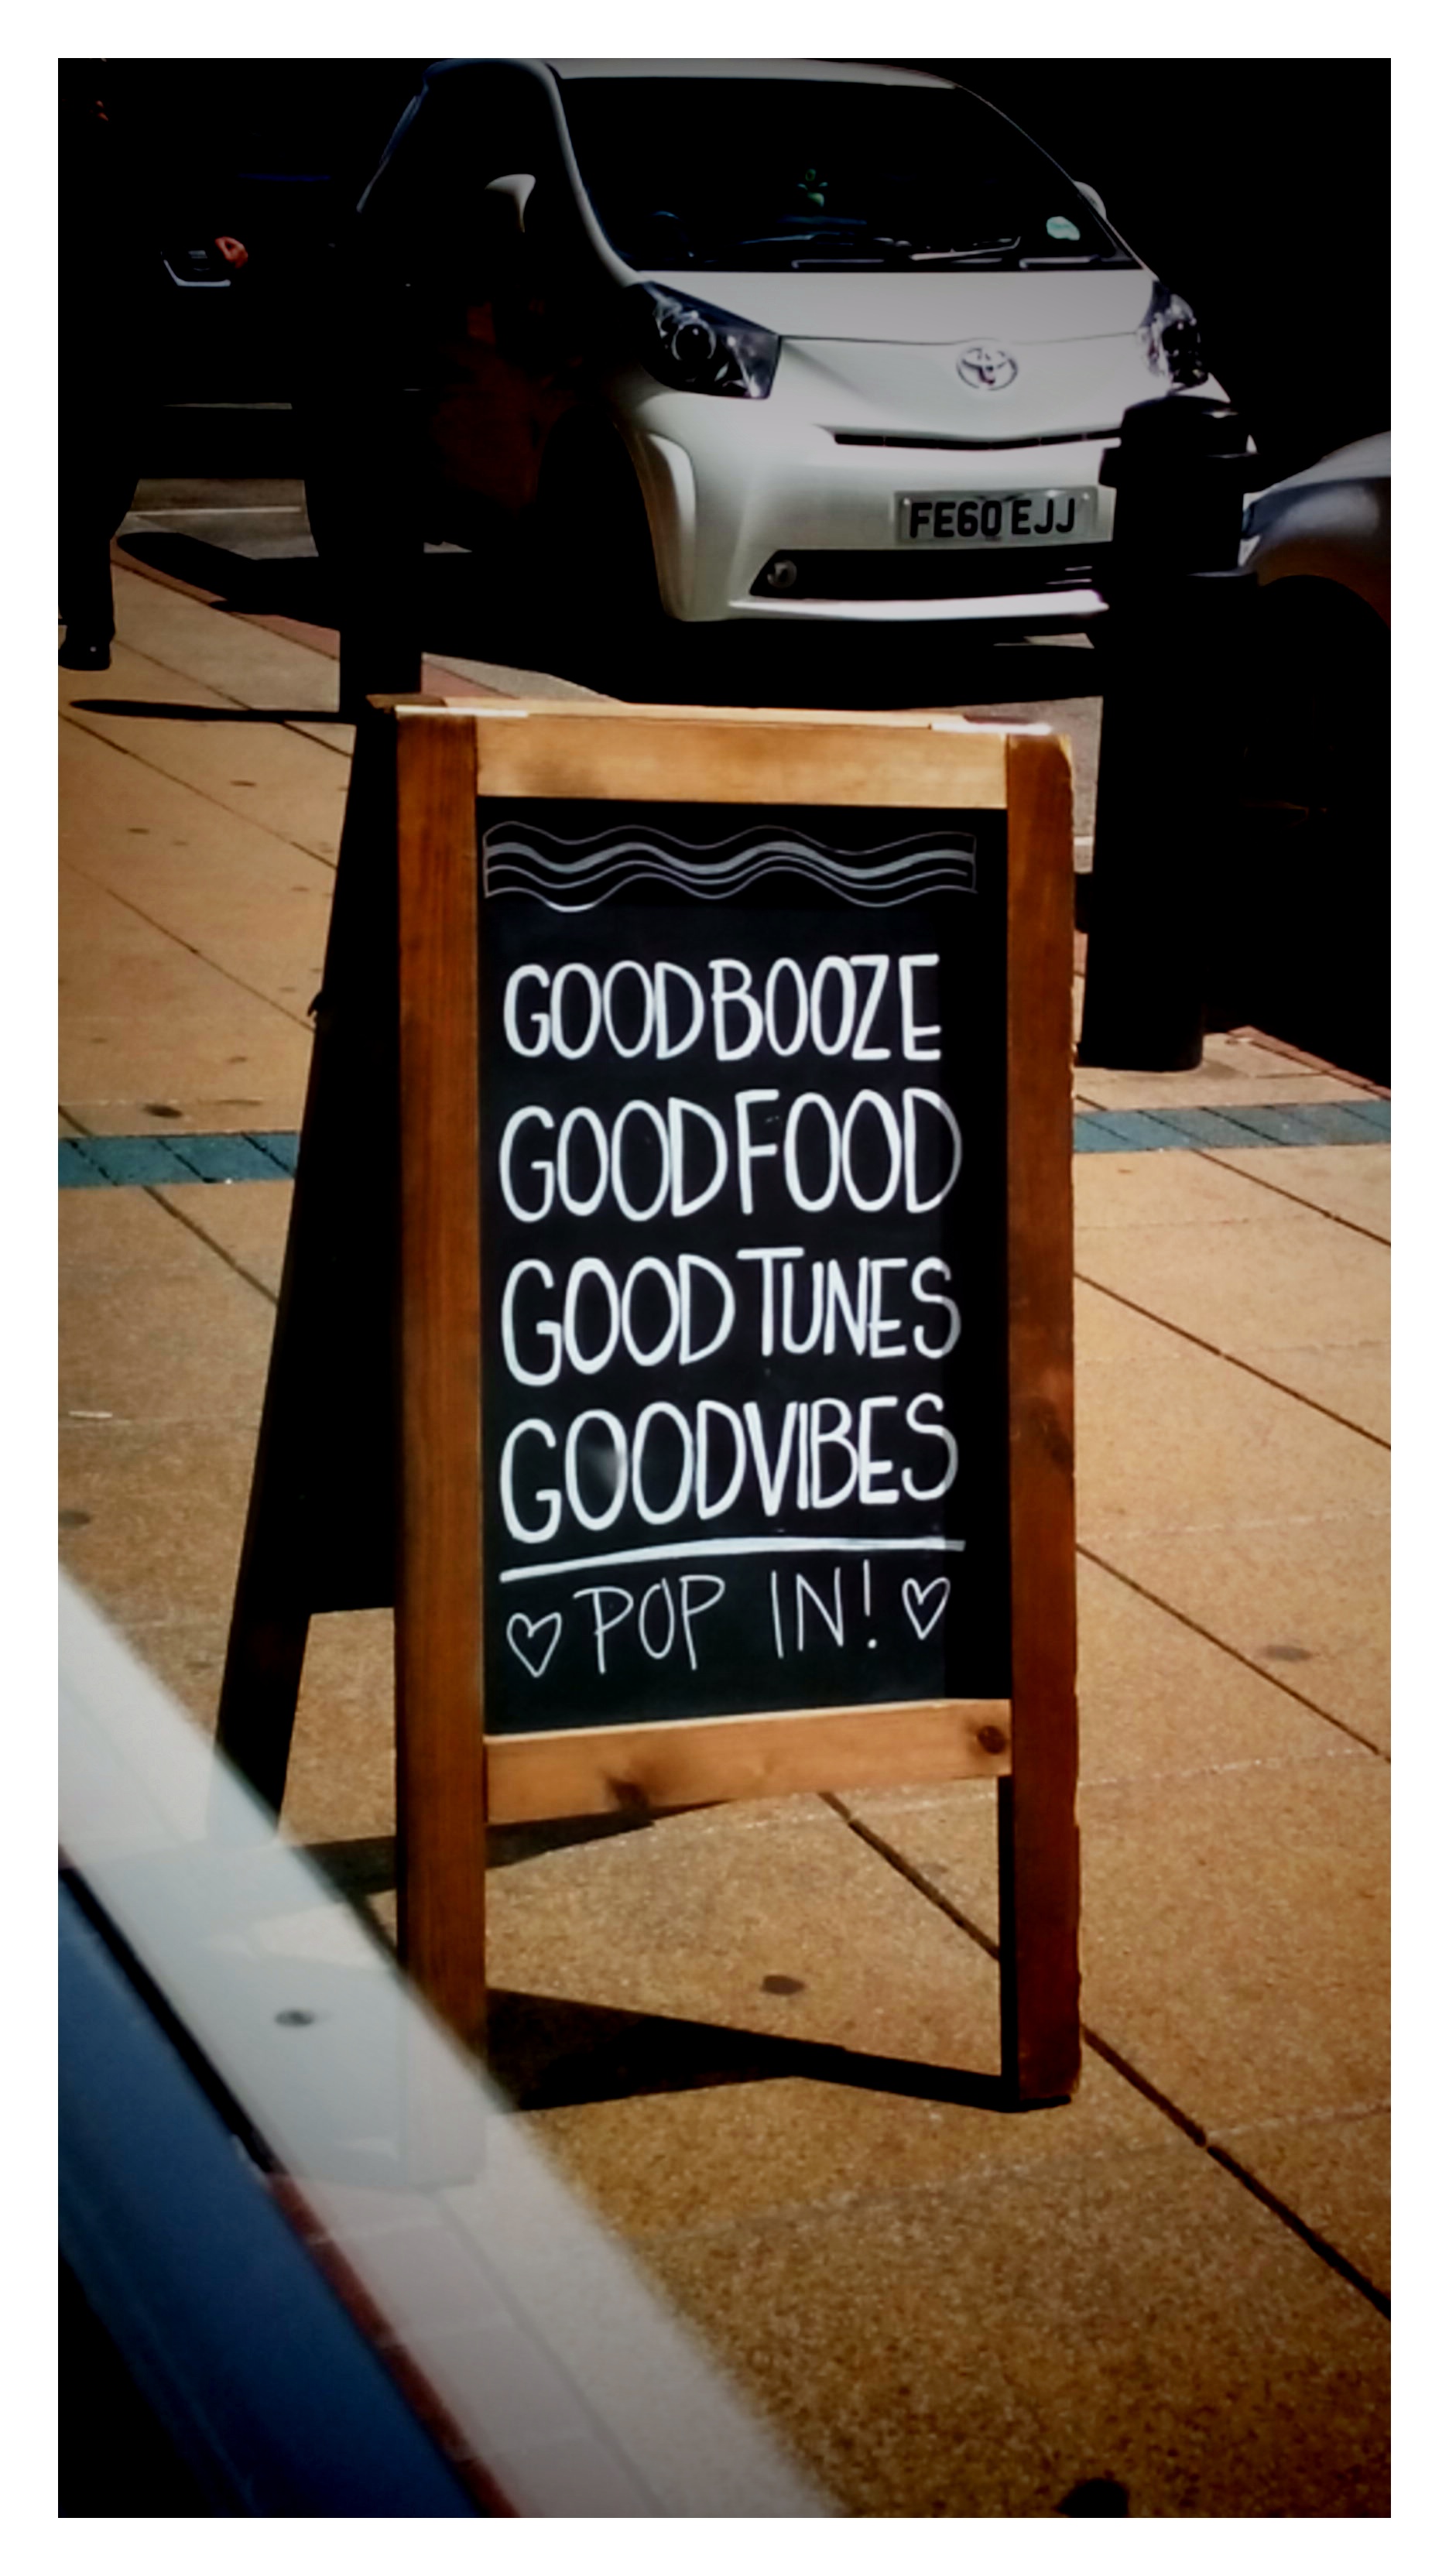 FE60 EJJ
GOOD BOOZE
GOOD FOOD
GOOD TUNES
GOOD VIBES
POP IN!